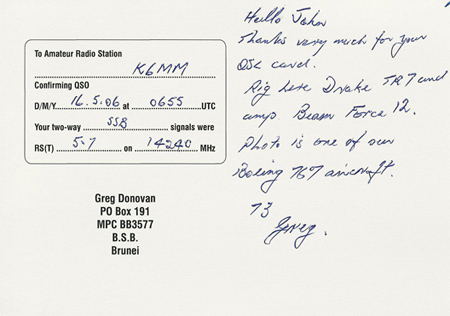 To Amateur Radio Station
K6MM
Confirming QSO
D/M/Y 16.5.06 at 0655 UTC
Your two-way SSB signals were
RS(T) 5.7 on 14240 MHz
Greg Donovan
PO Box 191
MPC BB3577
B.S.B.
Brunei
Hello John
Thanks very much for your
QSL card.
Rig here Drake TR7 and
amp. Beam Force 12.
Photo is one of our
Boeing 767 aircraft.
73
Greg.